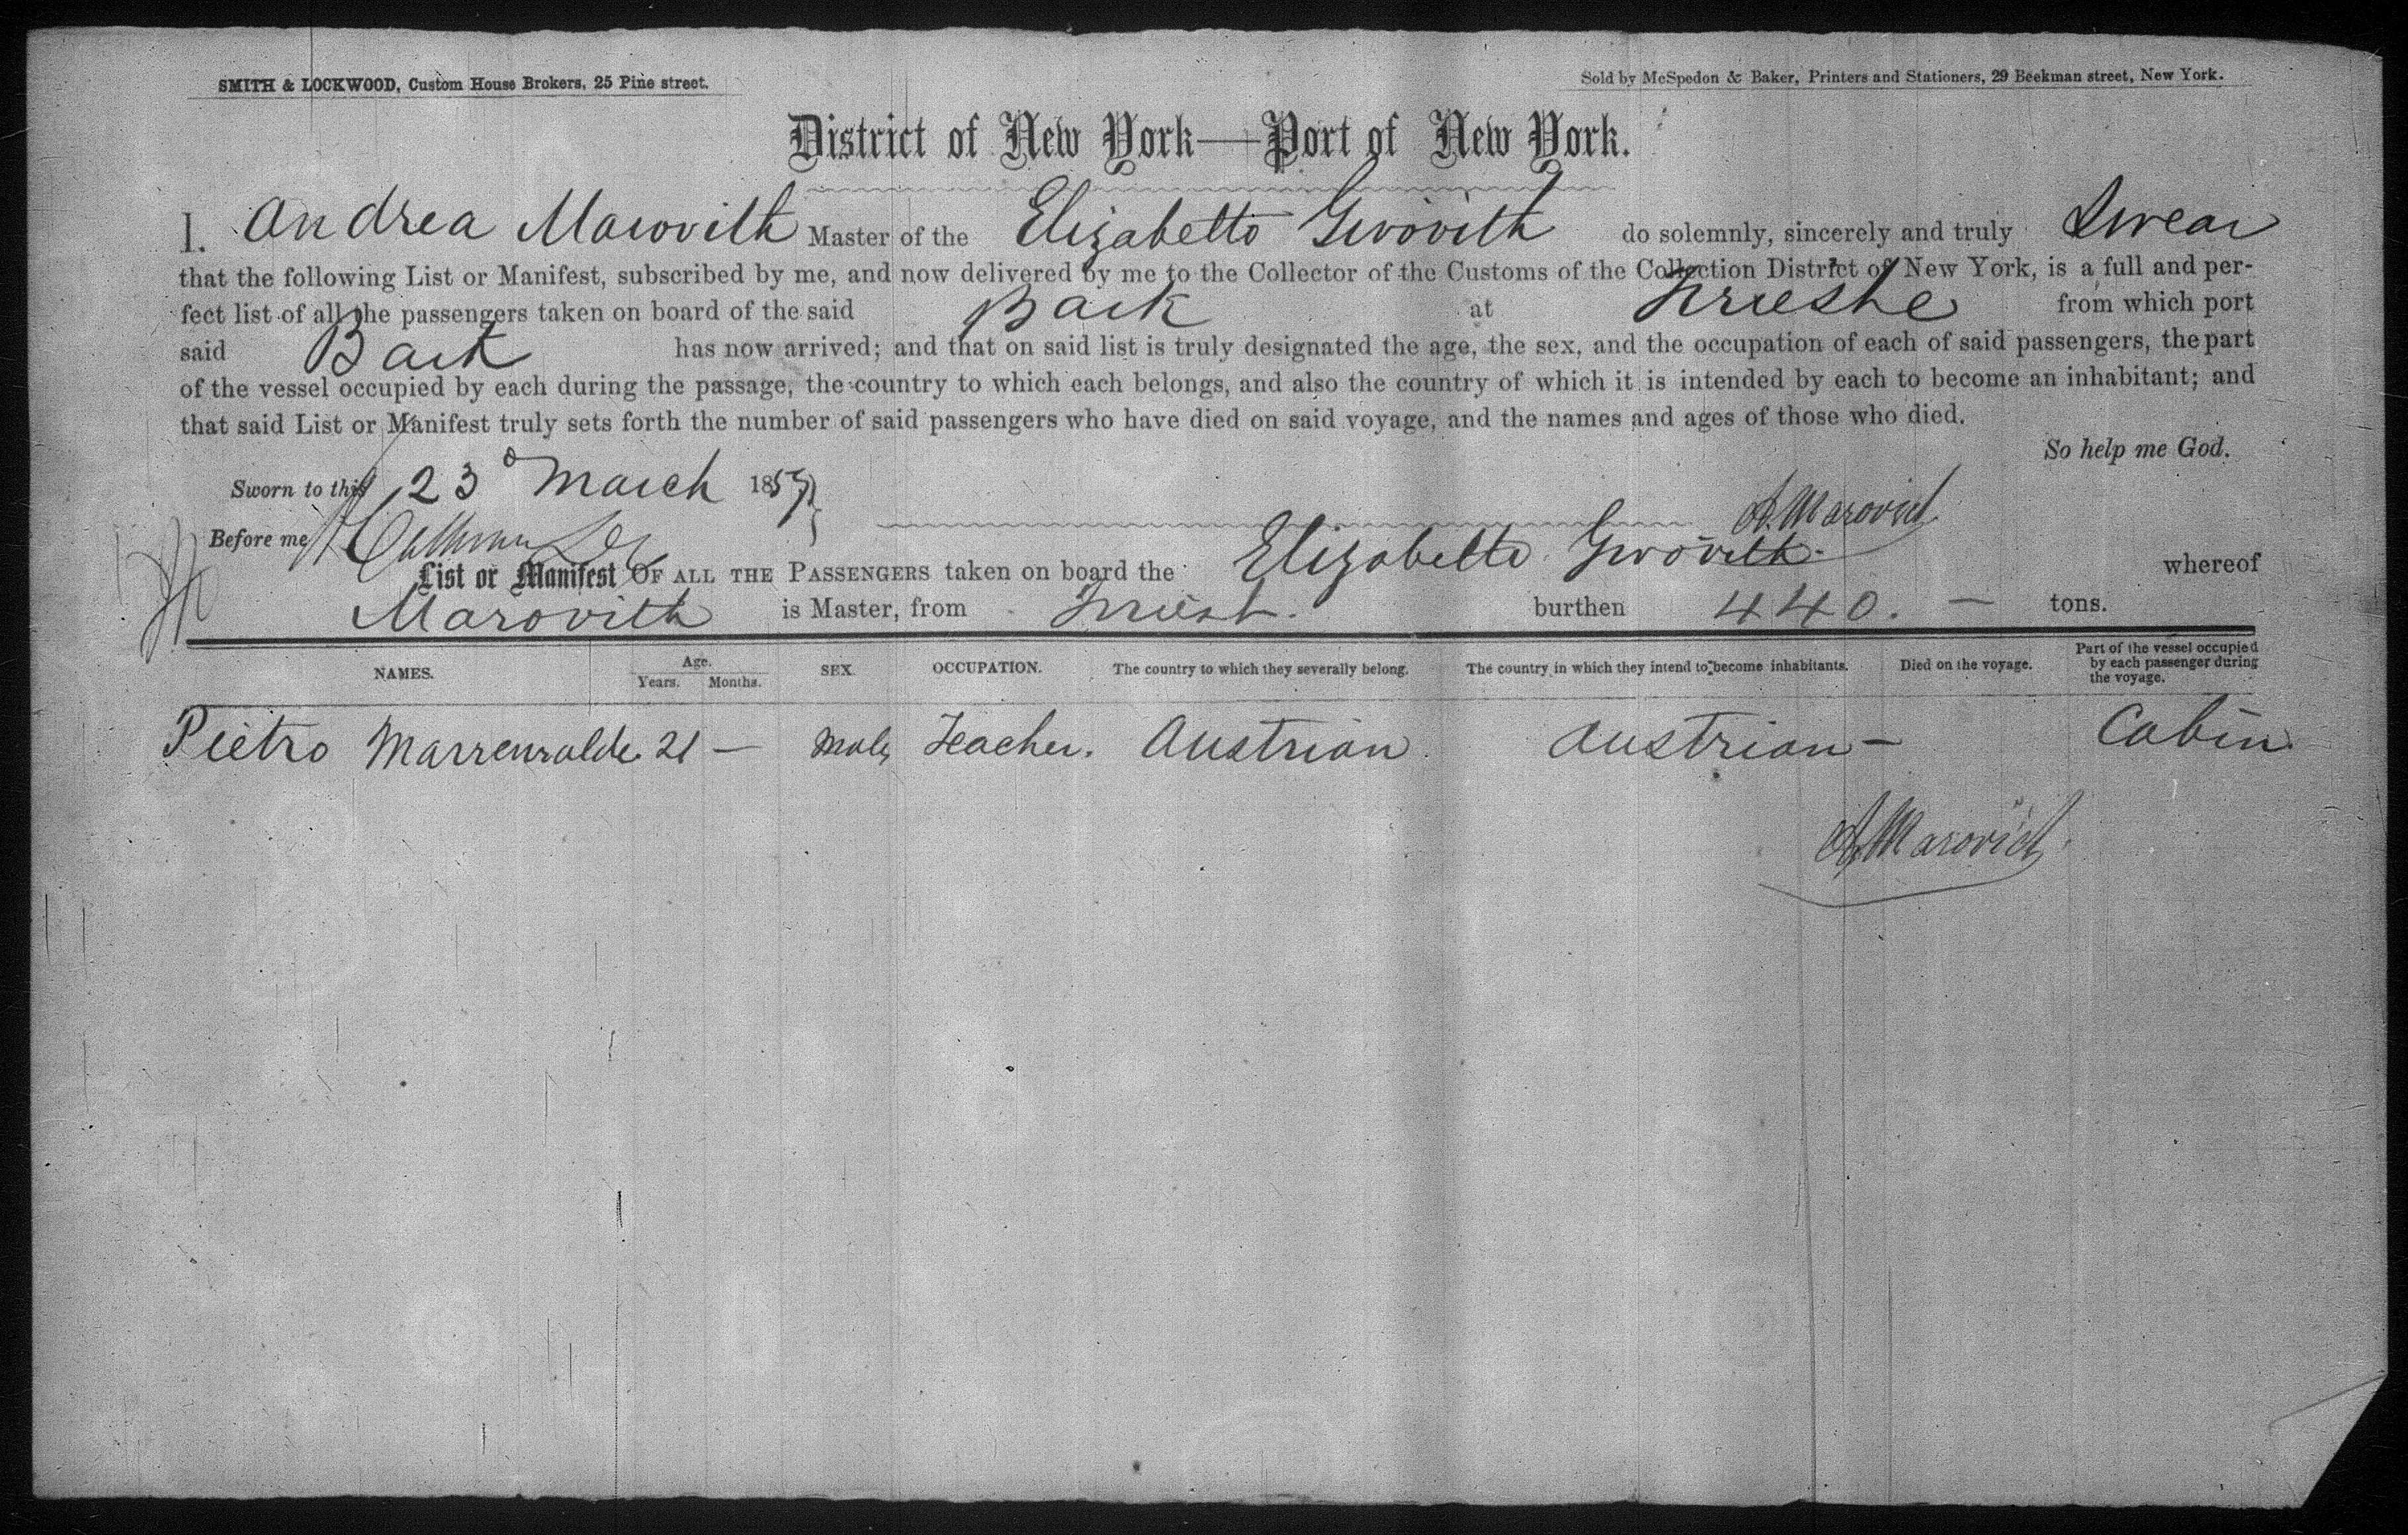 SMITH & LOCKWOOD, Custom House Brokers, 25 Pine street.
Sold by McSpedon & Baker, Printers and Stationers, 29 Beekman street, New York.
District of New York—Port of New York.
I. Andrea Marovith Master of the Elizabetto do solemnly, sincerely and truly Swear
that the following List or Manifest, subscribed by me, and now delivered by me to the Collector of the Customs of the Collection District of New York, is a full and per-
fect list of all the passengers taken on board of the said Bark at Trieste from which port
said Bark has now arrived; and that on said list is truly designated the age, the sex, and the occupation of each of said passengers, the part
of the vessel occupied by each during the passage, the country to which each belongs, and also the country of which it is intended by each to become an inhabitant; and
that said List or Manifest truly sets forth the number of said passengers who have died on said voyage, and the names and ages of those who died.
So help me God.
Sworn to this 23d March 1857
A. Marovich
Before me
List or Manifest OF ALL THE PASSENGERS taken on board the Elizabetto whereof
Marovith is Master, from Triest. burthen 440. — tons.
NAMES. Age. Years. Months. SEX. OCCUPATION. The country to which they severally belong. The country in which they intend to become inhabitants. Died on the voyage. Part of the vessel occupied by each passenger during the voyage.
Pietro 21 — Male Teacher. Austrian Austrian — Cabin
A. Marovich